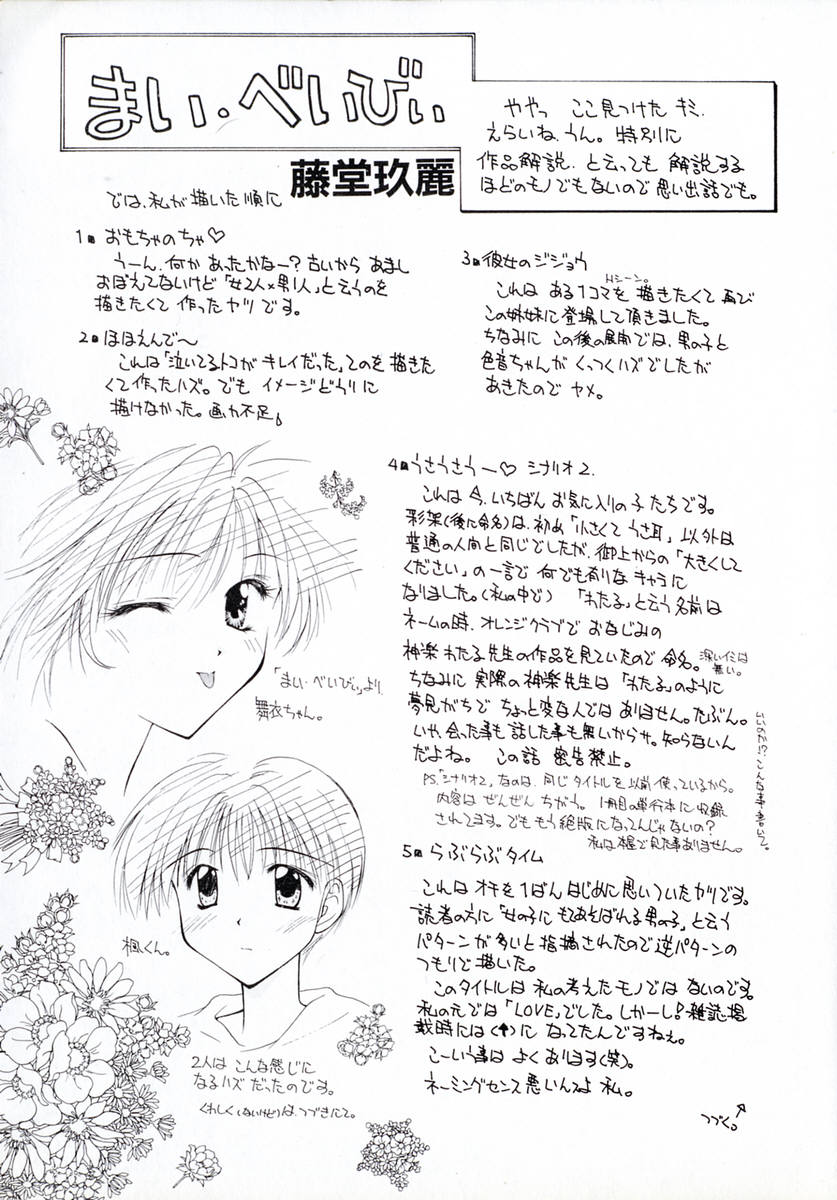 まい・べいびぃ
藤堂玖麗
ややっ ここ見つけた キミ、
えらいね、うん。特別に
作品解説、と云っても 解説する
ほどのモノでもないので 思い出話でも。
では、私が描いた順に
1 おもちゃのちゃ♡
うーん、何か あったかなー?古いから あまし
おぼえてないけど「女2人×男1人」と云うのを
描きたくて 作ったヤツ です。
2 ほほえんで〜
これは「泣いてるトコが キレイだった」てのを 描きた
くて作ったハズ。でも イメージどうりに
描けなかった。画力不足
3 彼女のジジョウ
Hシーン。
これは ある1コマを 描きたくて 再び
この姉妹に登場して頂きました。
ちなみに この後の展開では、男の子と
色音ちゃんが くっつくハズでしたが
あきたので ヤメ。
4 うさうさうー♡ シナリオ2.
これは 今、いちばん お気に入りの子たちです。
彩架(後に命名)は、初め「小さくて うさ耳」以外は
普通の人間と同じでしたが、御上からの「大きくして
ください」の一言で 何でも有りな キャラに
なりました。(私の中で) 「わたる」と云う名前は
ネームの時、オレンジクラブで おなじみの
神楽わたる先生の作品を見ていたので 命名。
深いイミは
無い。
ちなみに 実際の神楽先生は「わたる」のように
夢見がちで ちょっと変な人では ありません。たぶん。
いや、会った事も 話した事も 無いからサ。知らないん
だよね。 この話 密告禁止。
いいのか!?こんな事書いて。
PS.「シナリオ2」なのは、同じタイトルを以前使っているから。
内容は ぜんぜん ちがう。1冊目の単行本に収録
されてます。でも もう絶版になってんじゃないの?
私は本屋で見た事ありません。
5 らぶらぶタイム
これは オチを1ばん はじめに思いついたヤツです。
読者の方に「女の子に もてあそばれる男の子」と云う
パターンが多いと指摘されたので逆パターンの
つもりで描いた。
このタイトルは 私の考えたモノでは ないのです。
私の元では「LOVE」でした。しかーし!雑誌掲
載時には(↑)に なってたんですねぇ。
こーいう事は よくあります(笑)。
ネーミングセンス 悪いんだよ 私。
つづく。
「まい・べいびぃ」より、
舞衣ちゃん。
楓くん。
2人は こんな感じに
なるハズ だったのです。
くわしく(ないけど)は、つづきにて。